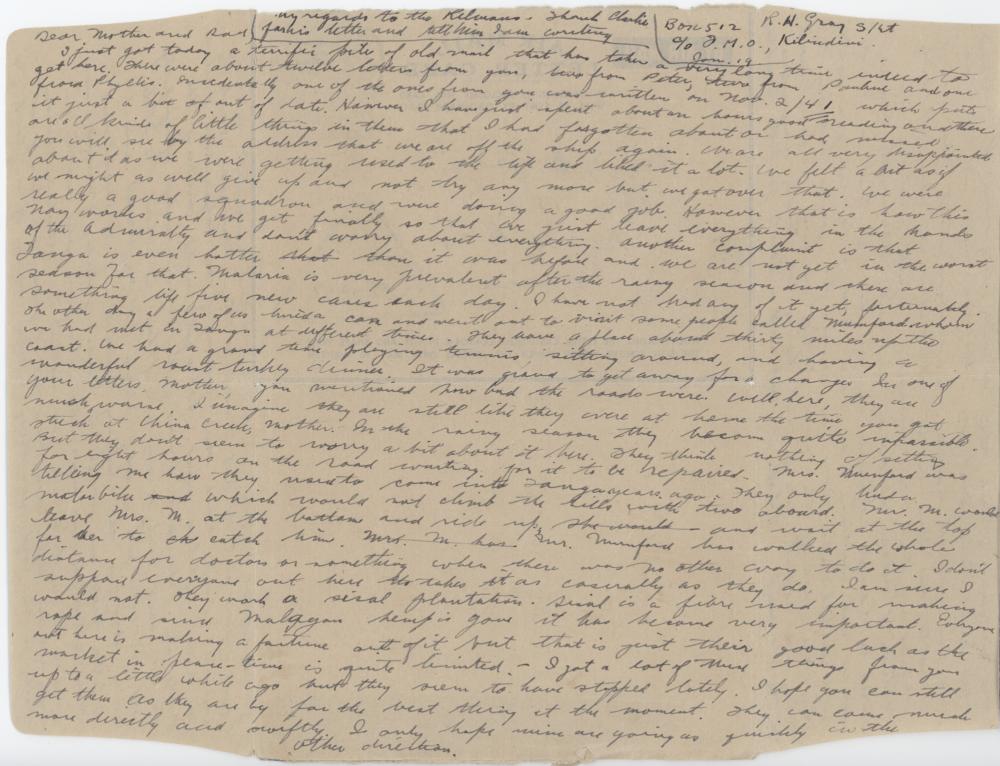 my regards to the Kilmans. Thank Charlie
for his letter and tell him I am writing
Box 512 R. H. Gray S/Lt
c/o F.M.O., Kilindini.
Jan. 19
Dear Mother and Dad
I just got today a terrific pile of old mail that has taken a very long time indeed to
get here. There were about twelve letters from you, two from Peter, two from Pauline and one
from Phyllis. Incidentally one of the ones from you was written on Nov. 2/41 which puts
it just a bit out of date. However I have just spent about an hours good reading and there
are all kinds of little things in them that I had forgotten about or had missed.
You will see by the address that we are off the ship again. We are all very disappointed
about it as we were getting used to the life and liked it a lot. We felt a bit as if
we might as well give up and not try any more but we got over that. We were
really a good squadron and were doing a good job. However that is how this
Navy works and we get finally so that we just leave everything in the hands
of the Admiralty and don't worry about everything. Another complaint is that
Tanga is even hotter than it was before and we are not yet in the worst
season for that. Malaria is very prevalent after the rainy season and there are
something life five new cases each day. I have not had any of it yet, fortunately.
The other day a few of us hired a car and went out to visit some people called Mumford whom
we had met in Tanga at different times. They have a place about thirty miles up the
coast. We had a grand time playing tennis, sitting around, and having a
wonderful roast turkey dinner. It was grand to get away for a change. In one of
your letters, Mother, you mentioned how bad the roads were. Well, here, they are
much worse. I imagine they are still like they were at home the time you got
stuck at China Creek, Mother. In the rainy season they become quite impassible.
But they don't seem to worry a bit about it here. They think nothing of sitting
for eight hours on the road waiting for it to be repaired. Mrs. Mumford was
telling me how they used to come into Tanga years ago. They only had a
motorbike and which would not climb the hills with two aboard. Mr. M. would
leave Mrs. M. at the bottom and ride up, she would and wait at the top
for her to catch him. Mrs. M. has Mr. Mumford has walked the whole
distance for doctors or something when there was no other way to do it. I don't
suppose everyone out here takes it as casually as they do. I am sure I
would not. They work a sisal plantation. Sisal is a fibre used for making
rope and since Malayan hemp is gone it has become very important. Everyone
out here is making a fortune out of it but that is just their good luck as the
market in peace-time is quite limited. - I got a lot of things from you
up to a little while ago but they seem to have stopped lately. I hope you can still
get them as they are by far the best thing at the moment. They can come much
more directly and swiftly. I only hope mine are going as quickly in the
other direction.